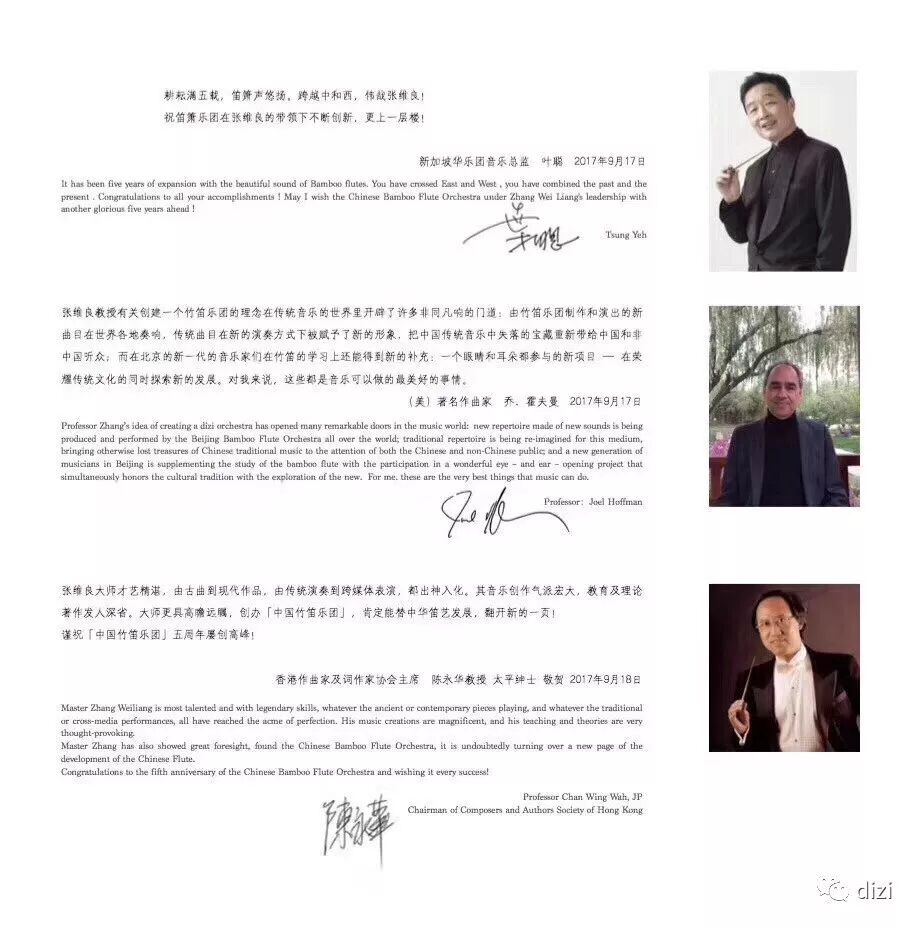 耕耘满五载，笛箫声悠扬。跨越中和西，伟哉张维良！
祝笛箫乐团在张维良的带领下不断创新，更上一层楼！
新加坡华乐团音乐总监 叶聪 2017年9月17日
It has been five years of expansion with the beautiful sound of Bamboo flutes. You have crossed East and West , you have combined the past and the
present . Congratulations to all your accomplishments ! May I wish the Chinese Bamboo Flute Orchestra under Zhang Wei Liang's leadership with
another glorious five years ahead !
葉聰
Tsung Yeh
张维良教授有关创建一个竹笛乐团的理念在传统音乐的世界里开辟了许多非同凡响的门道：由竹笛乐团制作和演出的新
曲目在世界各地奏响，传统曲目在新的演奏方式下被赋予了新的形象，把中国传统音乐中失落的宝藏重新带给中国和非
中国听众；而在北京的新一代的音乐家们在竹笛的学习上还能得到新的补充：一个眼睛和耳朵都参与的新项目 — 在荣
耀传统文化的同时探索新的发展。对我来说，这些都是音乐可以做的最美好的事情。
（美）著名作曲家 乔．霍夫曼 2017年9月17日
Professor Zhang's idea of creating a dizi orchestra has opened many remarkable doors in the music world: new repertoire made of new sounds is being
produced and performed by the Beijing Bamboo Flute Orchestra all over the world; traditional repertoire is being re-imagined for this medium,
bringing otherwise lost treasures of Chinese traditional music to the attention of both the Chinese and non-Chinese public; and a new generation of
musicians in Beijing is supplementing the study of the bamboo flute with the participation in a wonderful eye – and ear – opening project that
simultaneously honors the cultural tradition with the exploration of the new. For me. these are the very best things that music can do.
Professor: Joel Hoffman
张维良大师才艺精湛，由古曲到现代作品，由传统演奏到跨媒体表演，都出神入化。其音乐创作气派宏大，教育及理论
著作发人深省。大师更具高瞻远瞩，创办「中国竹笛乐团」，肯定能替中华笛艺发展，翻开新的一页！
谨祝「中国竹笛乐团」五周年屡创高峰！
香港作曲家及词作家协会主席 陈永华教授 太平绅士 敬贺 2017年9月18日
Master Zhang Weiliang is most talented and with legendary skills, whatever the ancient or contemporary pieces playing, and whatever the traditional
or cross-media performances, all have reached the acme of perfection. His music creations are magnificent, and his teaching and theories are very
thought-provoking.
Master Zhang has also showed great foresight, found the Chinese Bamboo Flute Orchestra, it is undoubtedly turning over a new page of the
development of the Chinese Flute.
Congratulations to the fifth anniversary of the Chinese Bamboo Flute Orchestra and wishing it every success!
Professor Chan Wing Wah, JP
Chairman of Composers and Authors Society of Hong Kong
陳永華
dizi